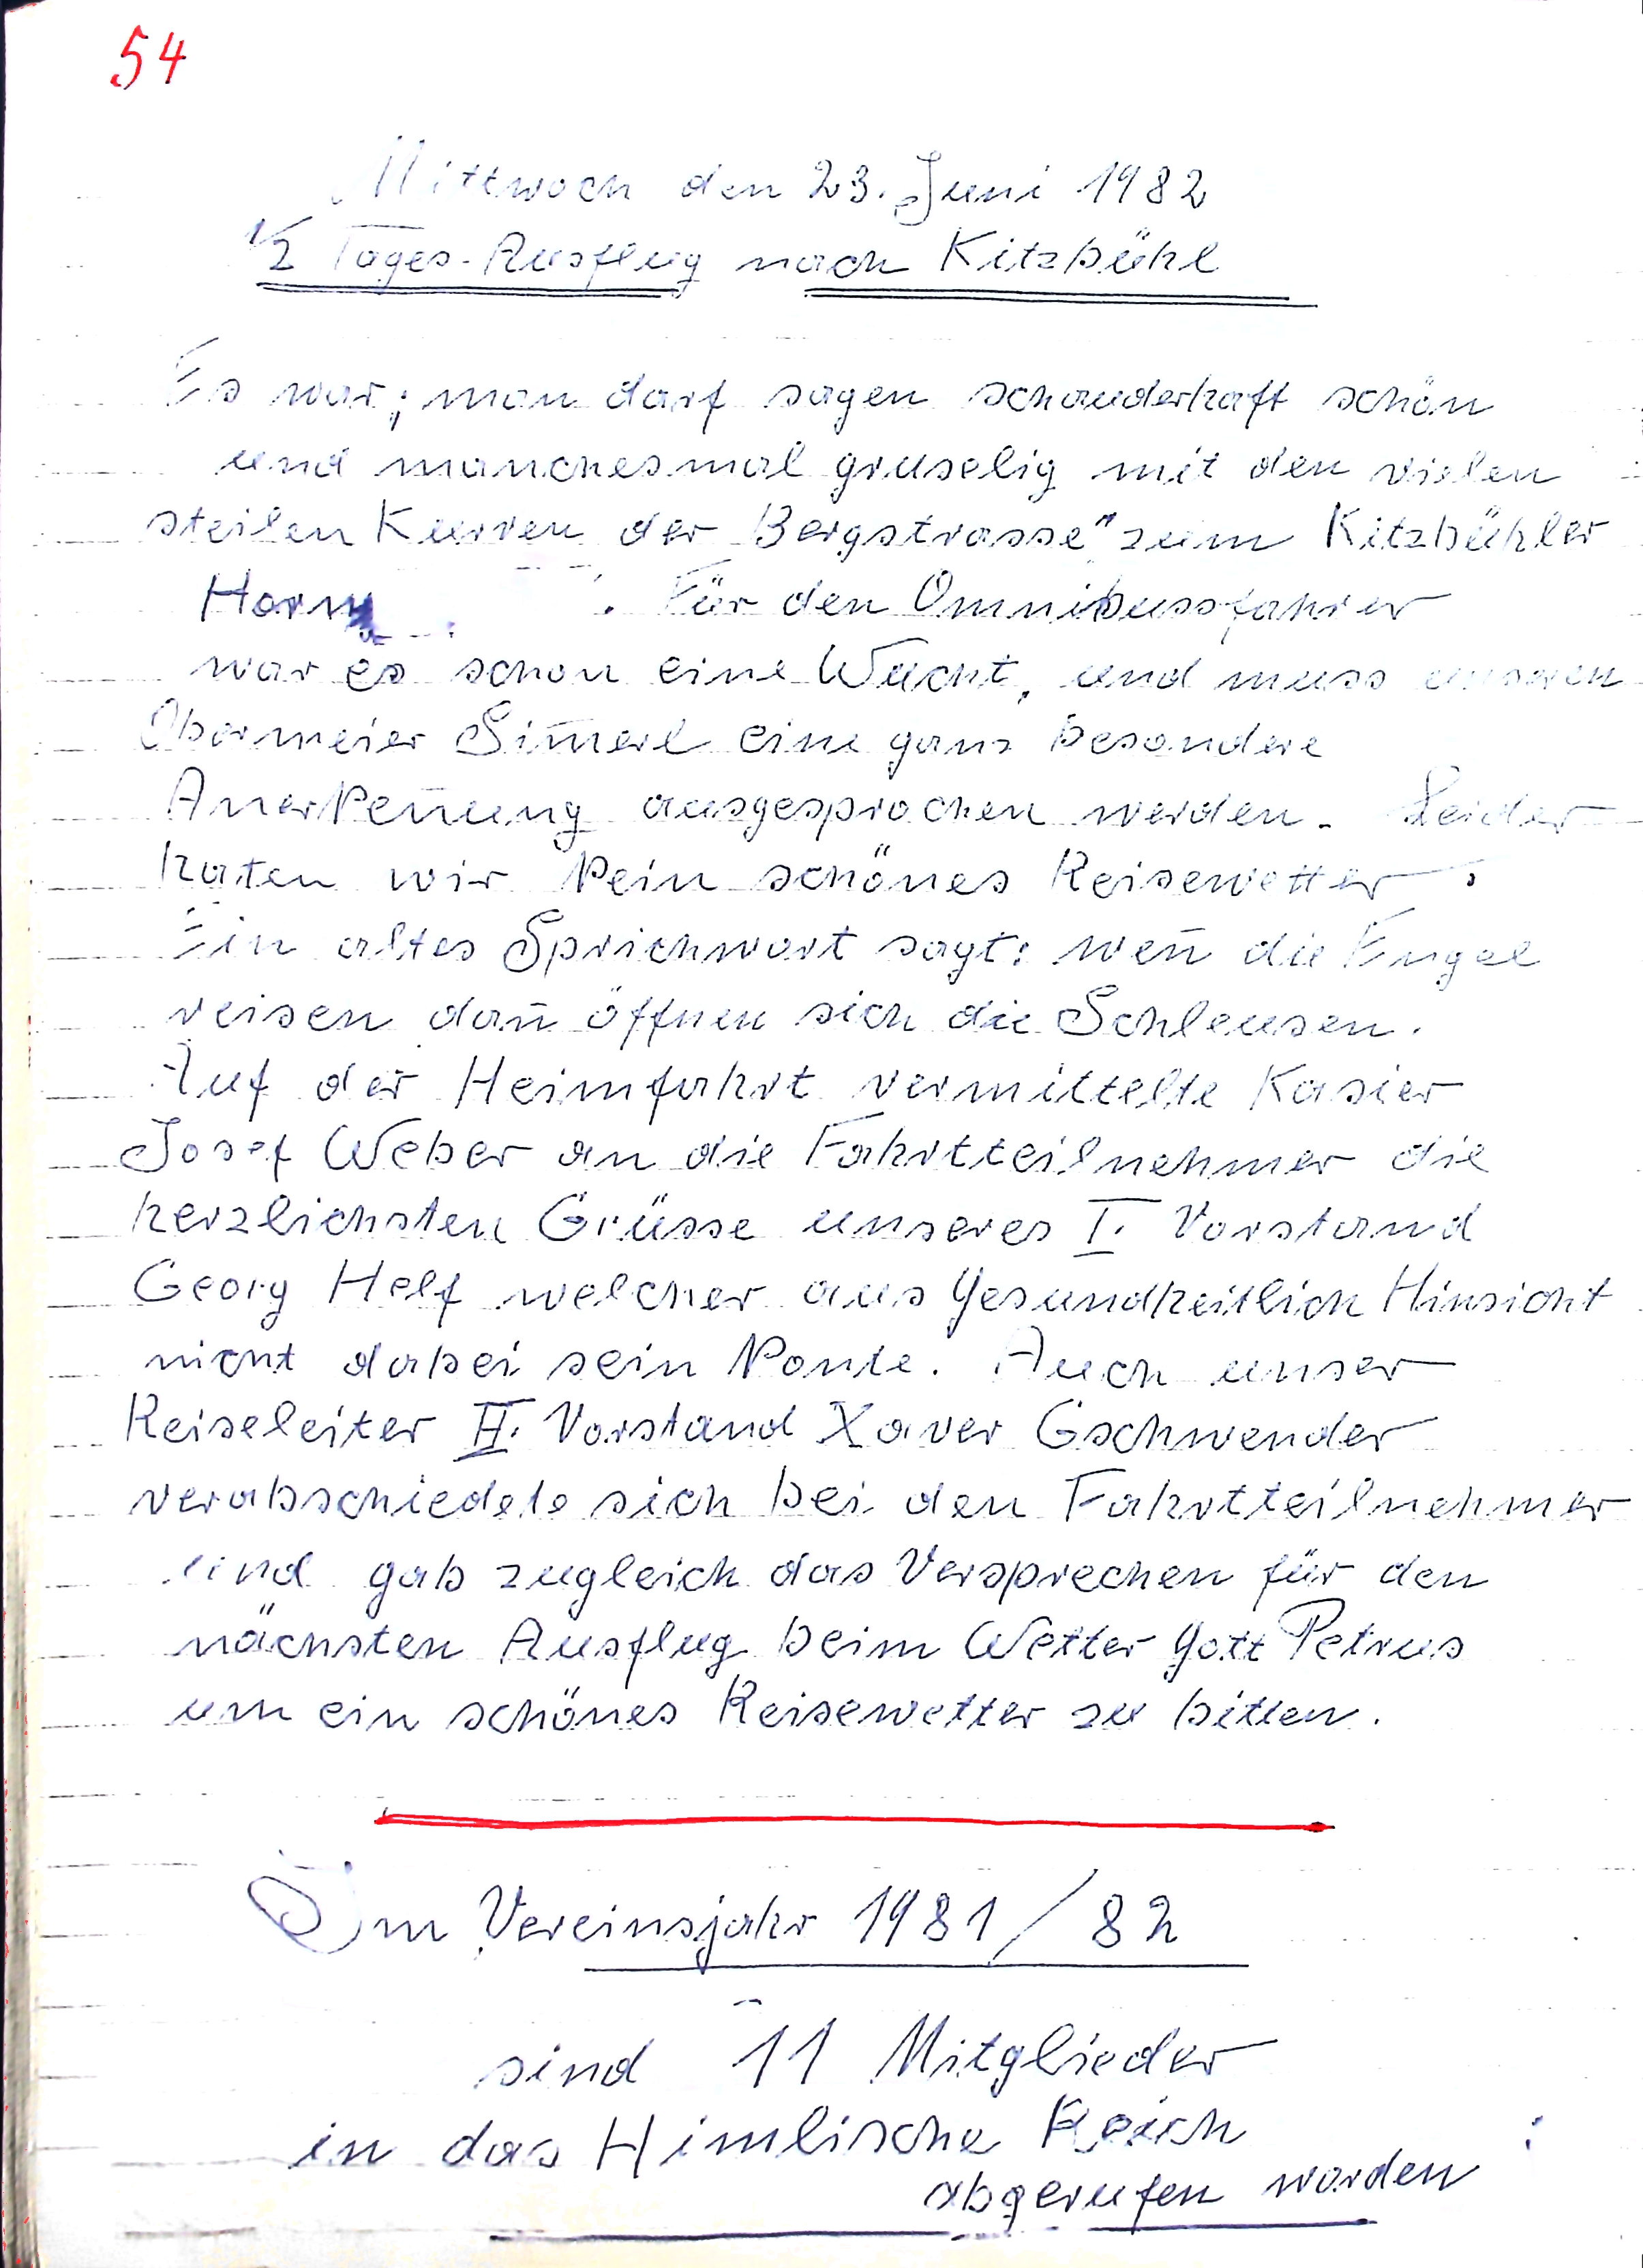 54
Mittwoch den 23. Juni 1982
1/2 Tages-Ausflug nach Kitzbühl
Es war; man darf sagen schauderhaft schön
und manchesmal gruselig mit den vielen
steilen Kurven der Bergstrasse" zum Kitzbühler
Horn . Für den Omnibussfahrer
war es schon eine Wucht, und muss unseren
Obermeier Sim̄erl eine ganz besondere
Anerken̄ung ausgesprochen werden. Leider
haten wir kein schönes Reisewetter.
Ein altes Sprichwort sagt: wen̄ die Engel
reisen dan̄ öffnen sich die Schleusen.
Auf der Heimfahrt vermittelte Kasier
Josef Weber an die Fahrtteilnehmer die
herzlichsten Grüsse unseres I. Vorstand
Georg Helf welcher aus Gesundheitlich Hinsicht
nicht dabei sein konte. Auch unser
Reiseleiter II. Vorstand Xaver Gschwender
verabschiedete sich bei den Fahrtteilnehmer
und gab zugleich das Versprechen für den
nächsten Ausflug beim Wetter Gott Petrus
um ein schönes Reisewetter zu bitten.
Im Vereinsjahr 1981/82
sind 11 Mitglieder
in das Himlische Reich
abgerufen worden :